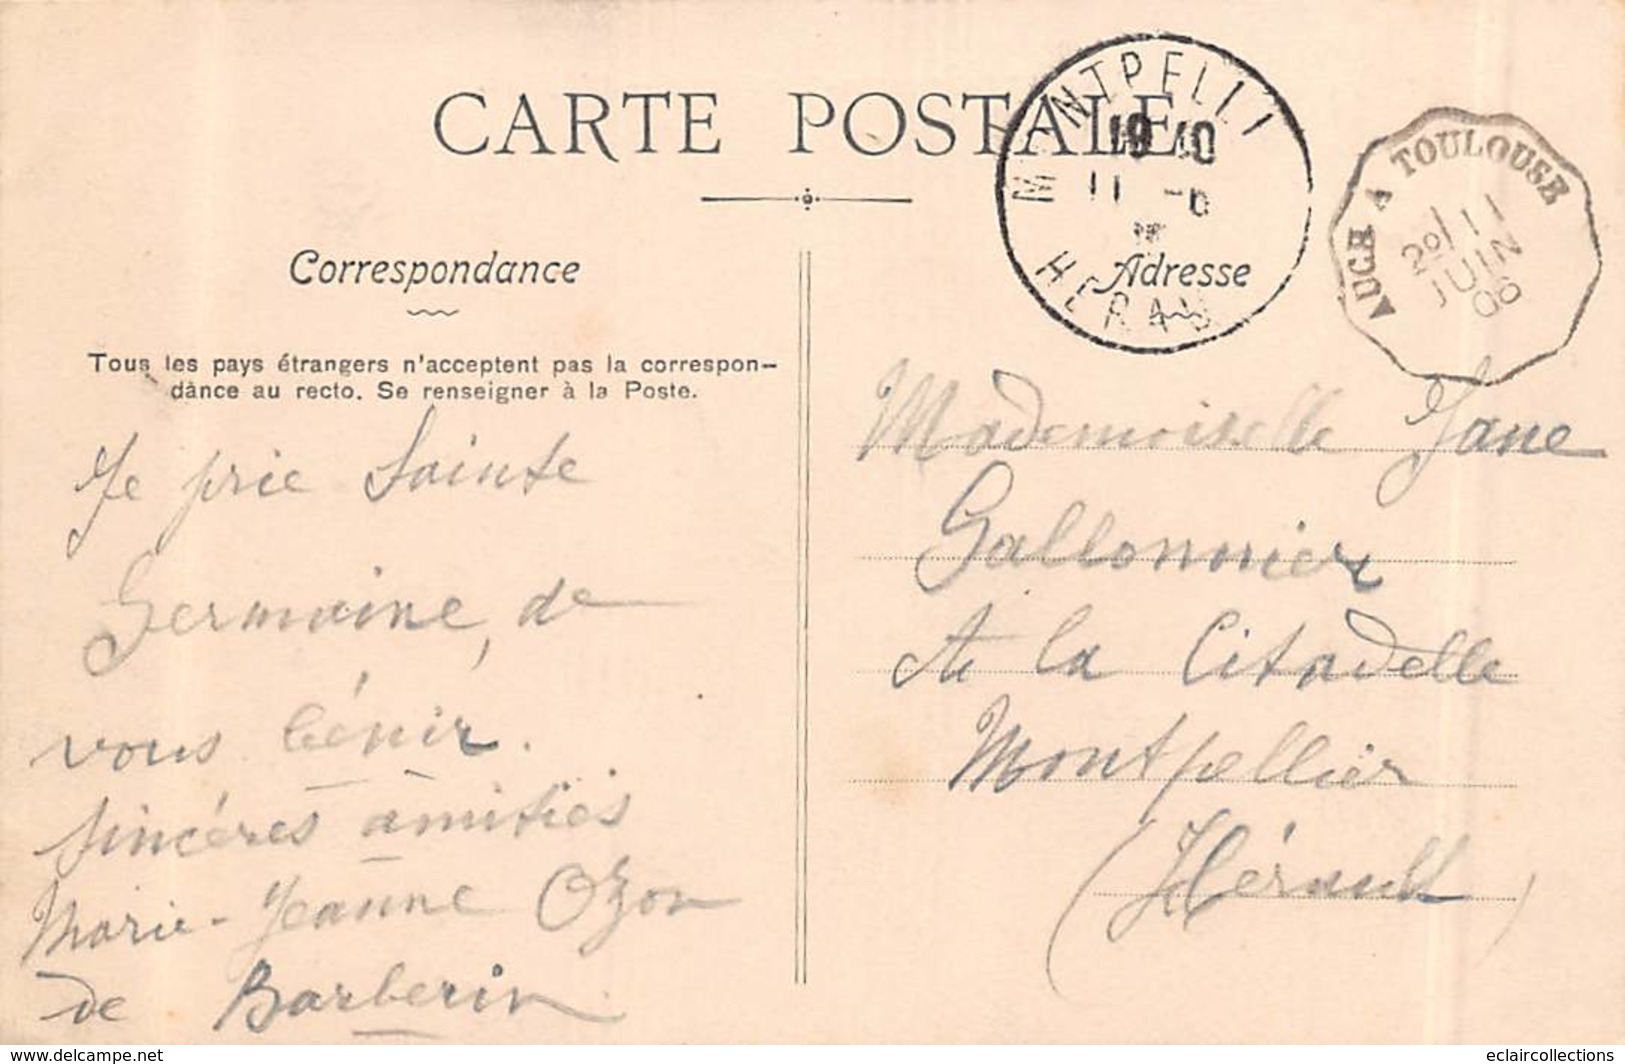 CARTE POSTALE
MONTPELLI
19 10
11 -6
HERAU
AUCH A TOULOUSE
2º/11
JUIN
06
Correspondance
Adresse
Tous les pays étrangers n'acceptent pas la correspon-
dance au recto. Se renseigner à la Poste.
Je prie Sainte
Germaine, de
vous bénir.
sincères amitiés
Marie-Jeanne Ozon
de Barberin
Mademoiselle Jane
Gallonnier
A la Citadelle
Montpellier
(Hérault)
www.delcampe.net
eclaircollections